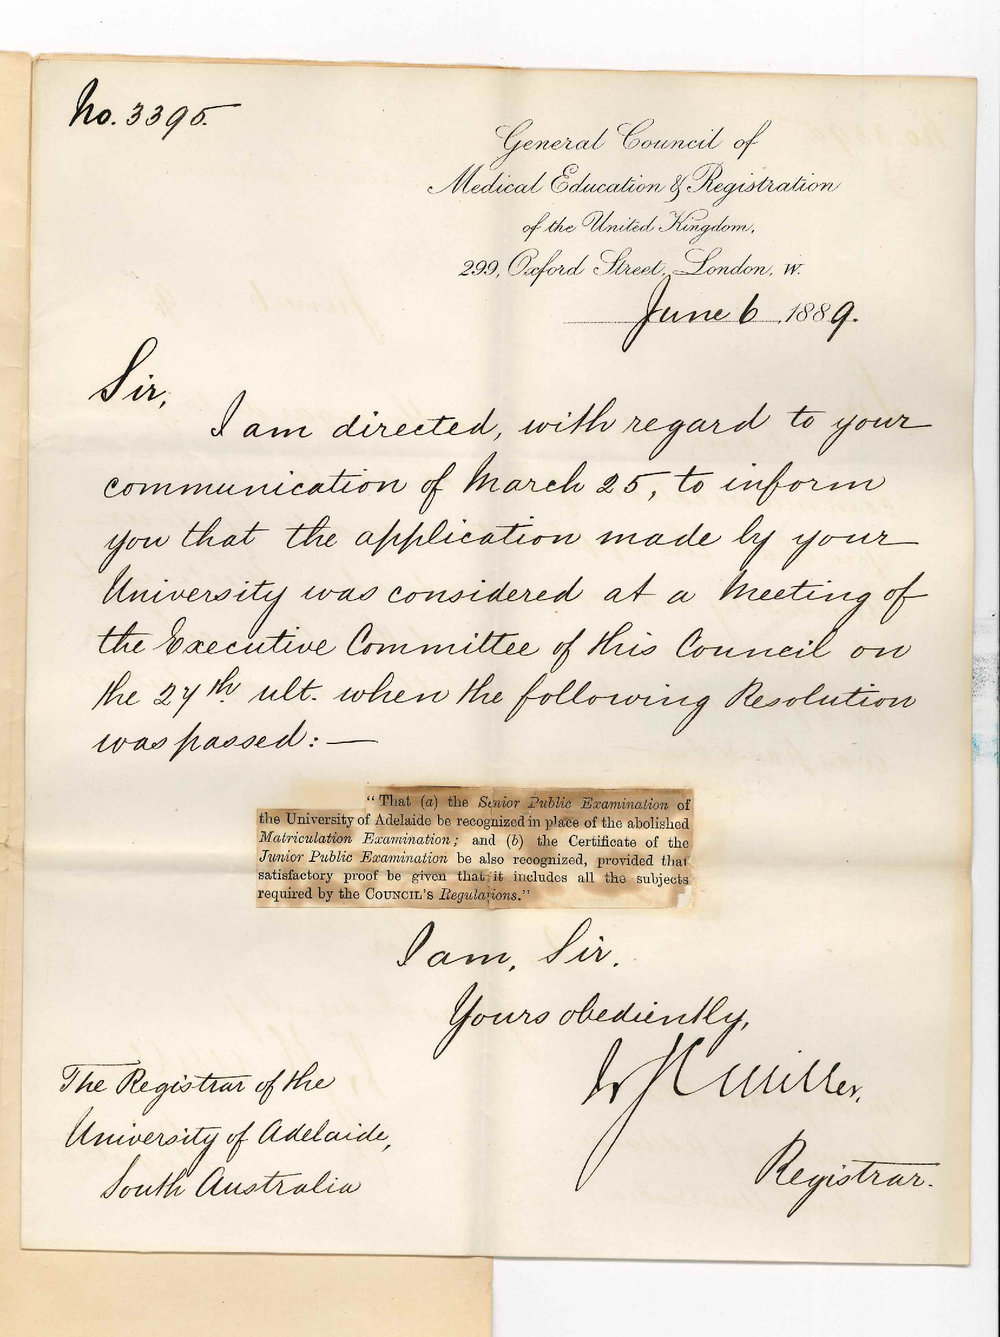 No. 3395.
General Council of
Medical Education & Registration
of the United Kingdom,
299, Oxford Street, London, W.
June 6 1889.
Sir,
I am directed, with regard to your
communication of March 25, to inform
you that the application made by your
University was considered at a Meeting of
the Executive Committee of this Council on
the 27th. ult. when the following Resolution
was passed: —
"That (a) the Senior Public Examination of
the University of Adelaide be recognized in place of the abolished
Matriculation Examination; and (b) the Certificate of the
Junior Public Examination be also recognized, provided that
satisfactory proof be given that it includes all the subjects
required by the COUNCIL'S Regulations."
I am, Sir,
Yours obediently,
W J C Miller,
Registrar.
The Registrar of the
University of Adelaide,
South Australia